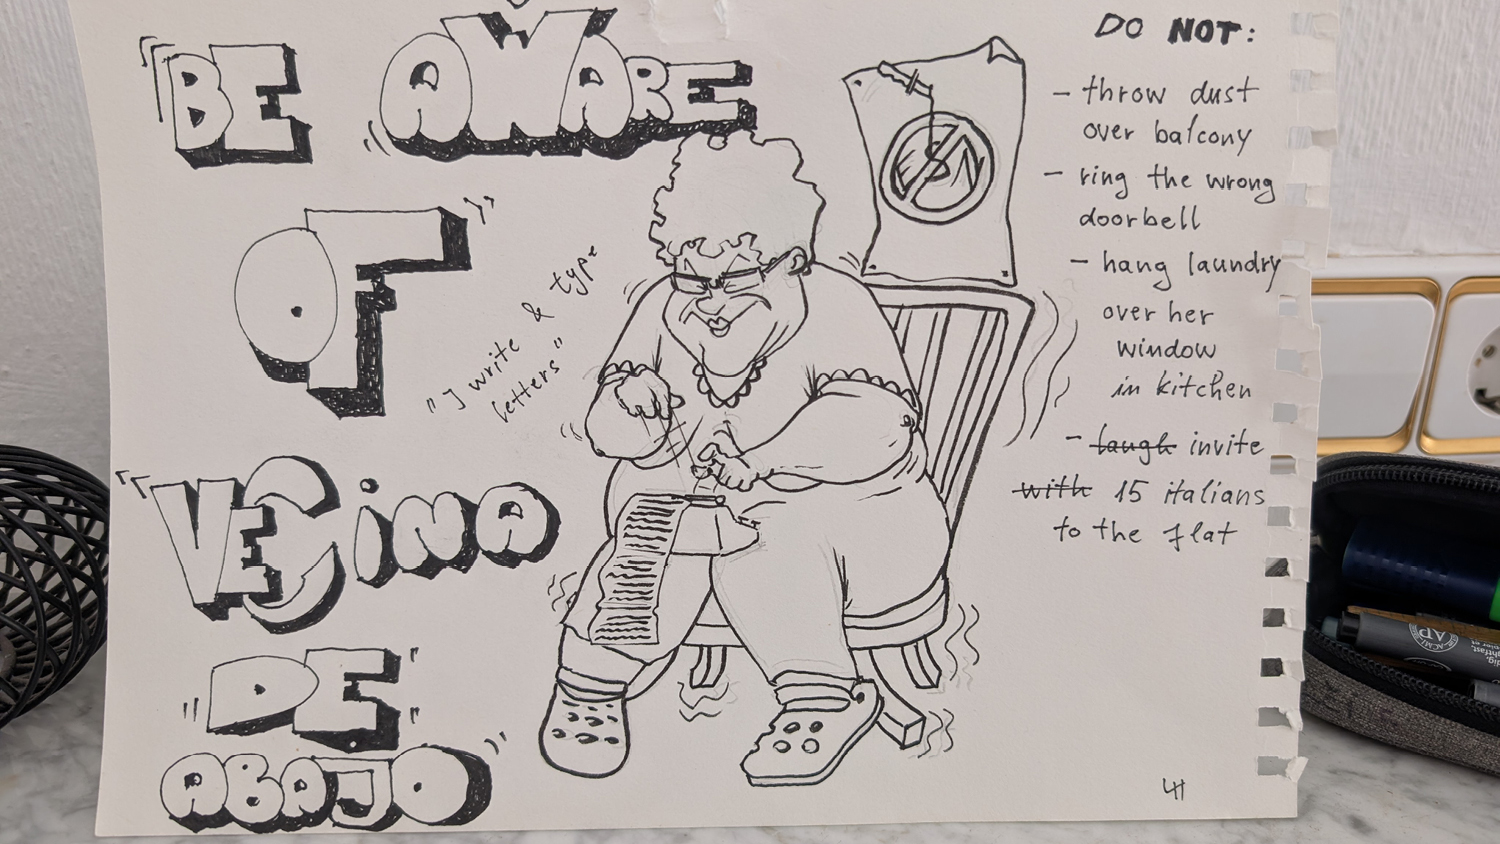 BE AWARE
OF
VECINA
DE
ABAJO
"I write & type
letters"
DO NOT:
- throw dust
over balcony
- ring the wrong
doorbell
- hang laundry
over her
window
in kitchen
- laugh invite
with 15 italians
to the flat
AP